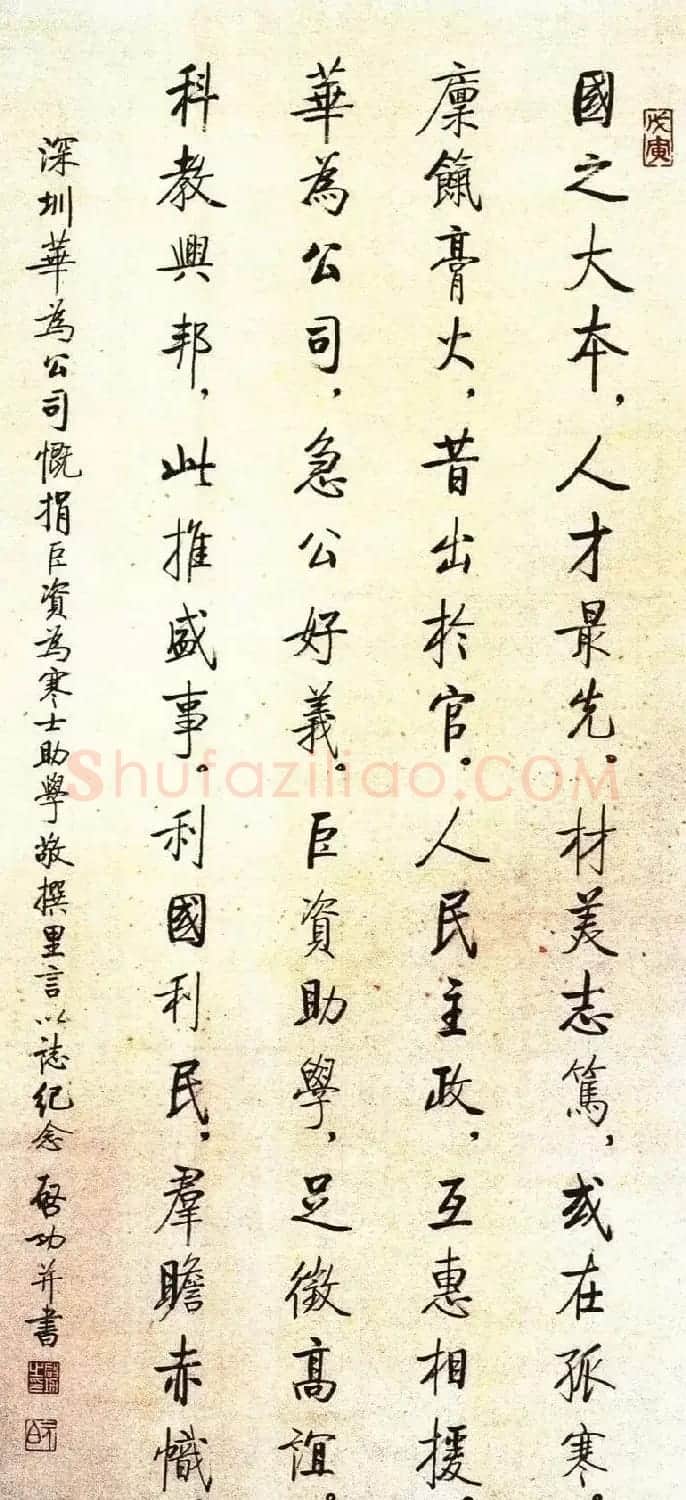 戊寅
國之大本，人才最先。材美志篤，或在孤寒。
廩餼膏火，昔出於官。人民主政，互惠相援。
華為公司，急公好義。巨資助學，足徵高誼。
科教興邦，此推盛事。利國利民，羣瞻赤幟。
深圳華為公司慨捐巨資為寒士助學敬撰里言以誌紀念 啓功并書
Shufaziliao.COM